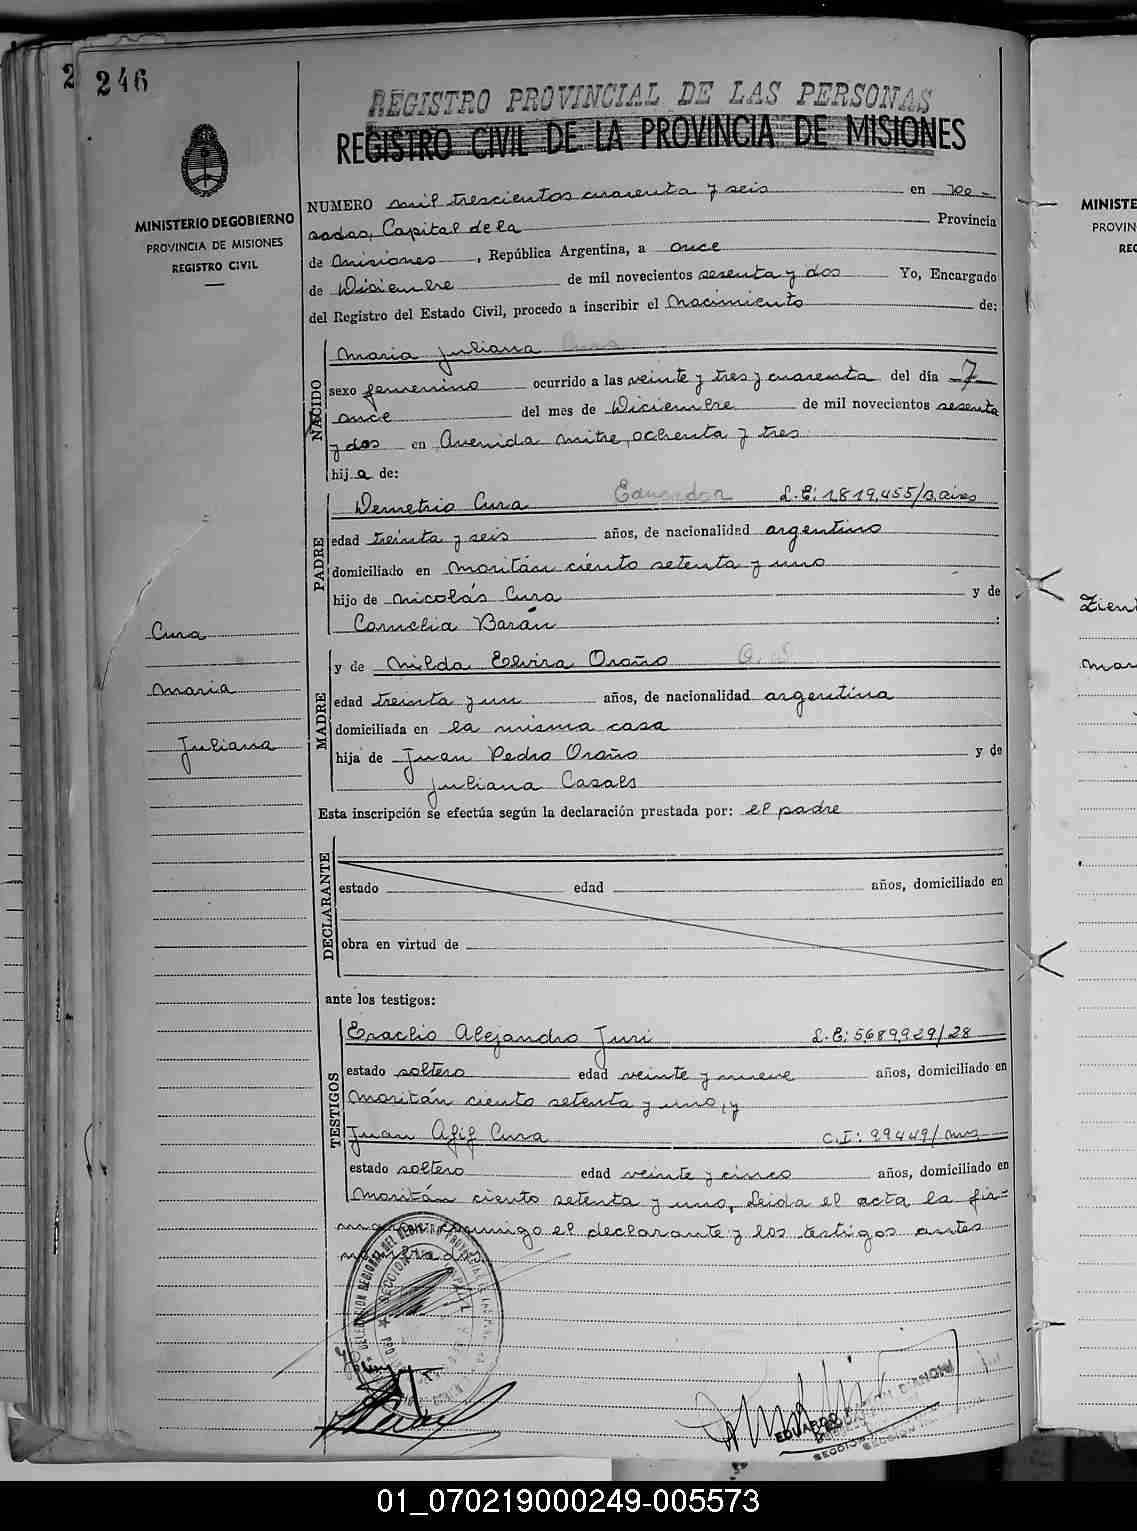 246
MINISTERIO DE GOBIERNO
PROVINCIA DE MISIONES
REGISTRO CIVIL
REGISTRO PROVINCIAL DE LAS PERSONAS
REGISTRO CIVIL DE LA PROVINCIA DE MISIONES
NUMERO mil trescientos cuarenta y seis en Po-
sadas, Capital de la Provincia
de Misiones, República Argentina, a once
de Diciembre de mil novecientos sesenta y dos Yo, Encargado
del Registro del Estado Civil, procedo a inscribir el Nacimiento de:
NACIDO
Maria Juliana Cura
sexo femenino ocurrido a las veinte y tres y cuarenta del día 7
once del mes de Diciembre de mil novecientos sesenta
y dos en Avenida Mitre, ochenta y tres
hij a de:
PADRE
Demetrio Cura L.E: 1,819,455/B.aires
edad treinta y seis años, de nacionalidad argentino
domiciliado en Moritán ciento setenta y uno
hijo de Nicolás Cura y de
Cornelia Barán :
MADRE
y de Nilda Elvira Oroño
edad treinta y un años, de nacionalidad argentina
domiciliada en la misma casa
hija de Juan Pedro Oroño y de
Juliana Casals
Esta inscripción se efectúa según la declaración prestada por: el padre
DECLARANTE
estado edad años, domiciliado en
obra en virtud de
ante los testigos:
TESTIGOS
Eraclio Alejandro Juri L.E: 5,689,929/28
estado soltero edad veinte y nueve años, domiciliado en
Moritán ciento setenta y uno, y
Juan Afif Cura C.I: 99449/Mnes
estado soltero edad veinte y cinco años, domiciliado en
Moritán ciento setenta y uno, Leida el acta la fir=
man conmigo el declarante y los testigos antes
nombrados
Cura
Maria
Juliana
EDUARDO
MINISTE
PROVIN
REG
01_070219000249-005573